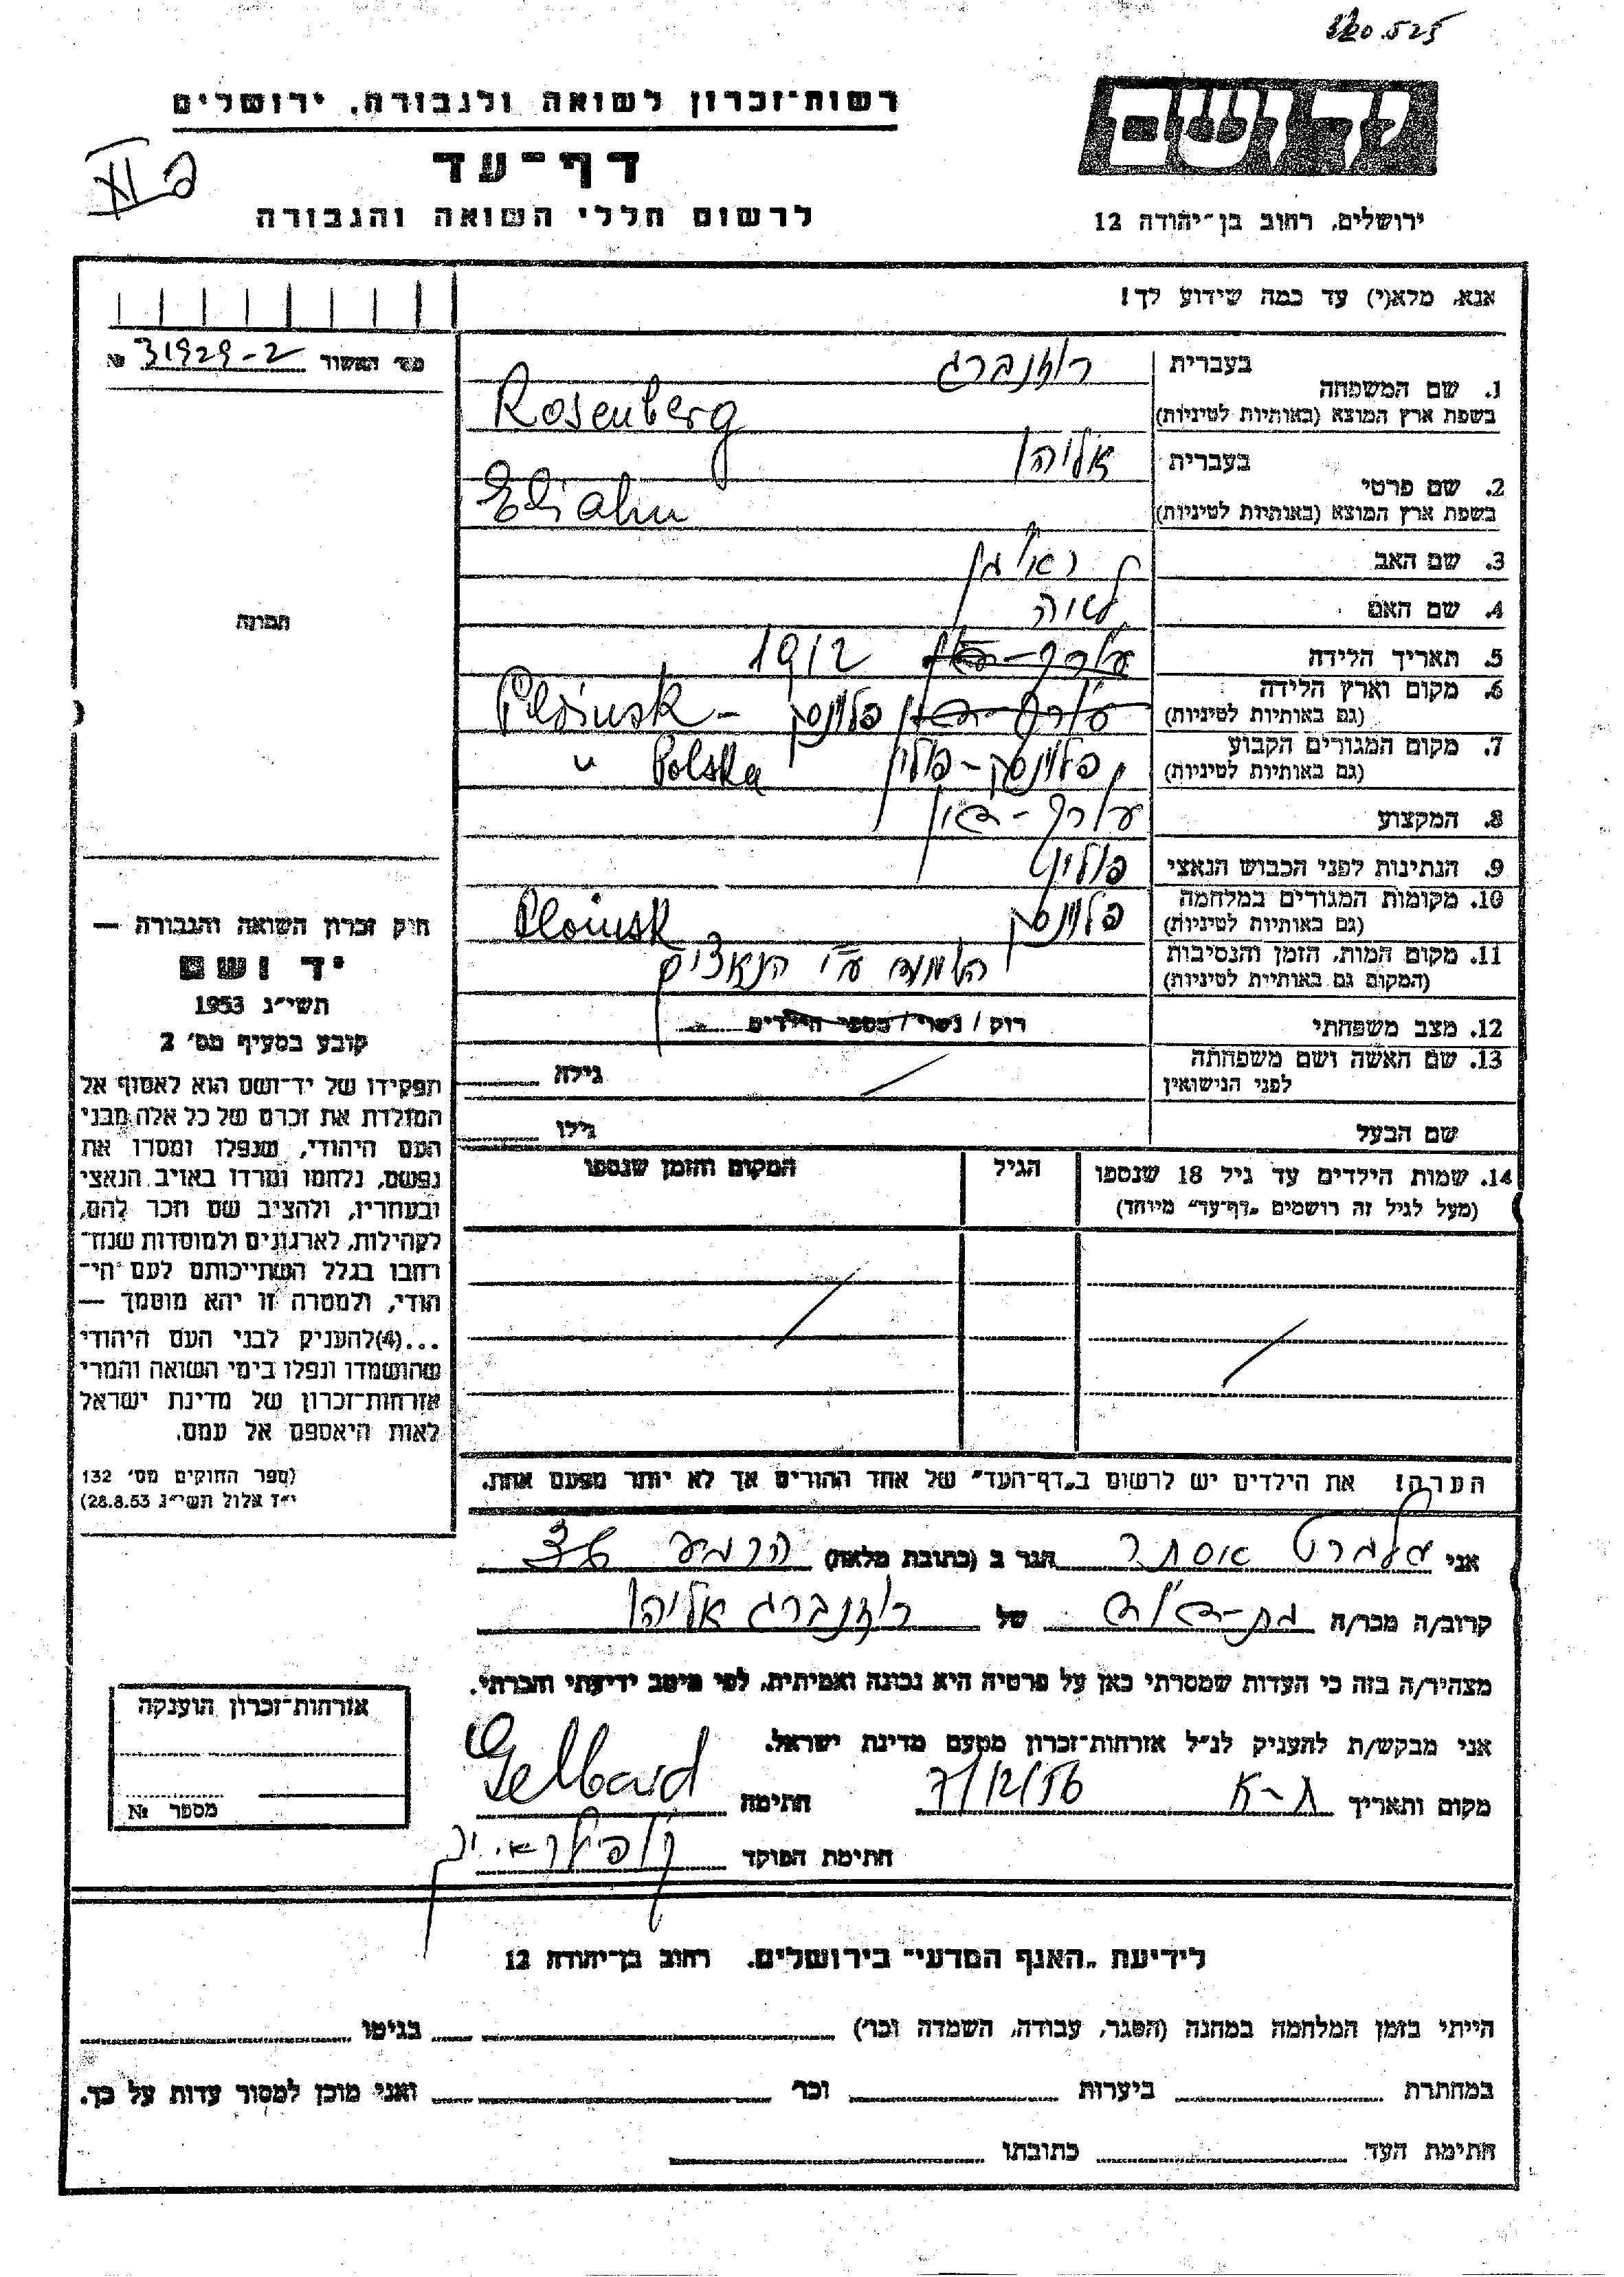 320.525
רשות־זכרון לשואה ולגבורה, ירושלים
יד ושם
דף־עד
לרשום חללי השואה והגבורה
ירושלים, רחוב בן־יהודה 12
אנא, מלא(י) עד כמה שידוע לך!
מס׳ האשור 31929-2 №
תמונה
1. שם המשפחה בעברית רוזנברג
בשפת ארץ המוצא (באותיות לטיניות) Rosenberg
2. שם פרטי בעברית אליהו
בשפת ארץ המוצא (באותיות לטיניות) Eliahu
3. שם האב
4. שם האם לאה
5. תאריך הלידה 1912
6. מקום וארץ הלידה פלונסק - Plońsk
(גם באותיות לטיניות)
7. מקום המגורים הקבוע פלונסק - פולין Polska "
(גם באותיות לטיניות)
8. המקצוע עורך-דין
9. הנתינות לפני הכבוש הנאצי פולין
10. מקומות המגורים במלחמה פלונסק
(גם באותיות לטיניות)
11. מקום המות, הזמן והנסיבות הושמד ע"י הנאצים
(המקום גם באותיות לטיניות)
12. מצב משפחתי רוק / נשוי / מספר הילדים
13. שם האשה ושם משפחתה
לפני הנישואין גילה
שם הבעל גילו
14. שמות הילדים עד גיל 18 שנספו הגיל המקום והזמן שנספו
(מעל לגיל זה רושמים „דף־עד" מיוחד)
הערה! את הילדים יש לרשום ב„דף־העד" של אחד ההורים אך לא יותר מפעם אחת.
חוק זכרון השואה והגבורה —
יד ושם
תשי״ג 1953
קובע בסעיף מס׳ 2
תפקידו של יד־ושם הוא לאסוף אל
המולדת את זכרם של כל אלה מבני
העם היהודי, שנפלו ומסרו את
נפשם, נלחמו ומרדו באויב הנאצי
ובעוזריו, ולהציב שם וזכר להם,
לקהילות, לארגונים ולמוסדות שנח־
רבו בגלל השתייכותם לעם הי־
הודי, ולמטרה זו יהא מוסמך —
...(4) להעניק לבני העם היהודי
שהושמדו ונפלו בימי השואה והמרי
אזרחות־זכרון של מדינת ישראל
לאות היאספם אל עמם.
(ספר החוקים מס׳ 132
י״ז אלול תשי״ג 28.8.53)
אני אסתר הגר ב (כתובת מלאה)
קרוב/ה מכר/ה בת-דודה של רוזנברג אליהו
מצהיר/ה בזה כי העדות שמסרתי כאן על פרטיה היא נכונה ואמיתית, לפי מיטב ידיעתי והכרתי.
אני מבקש/ת להעניק לנ״ל אזרחות־זכרון מטעם מדינת ישראל.
מקום ותאריך ת-א 7/12/56 חתימה Gelbard
חתימת הפוקד
אזרחות־זכרון הוענקה
מספר №
לידיעת „האגף המדעי" בירושלים. רחוב בן־יהודה 12
הייתי בזמן המלחמה במחנה (הסגר, עבודה, השמדה וכו׳) בגיטו
במחתרת ביערות וכו׳ ואני מוכן למסור עדות על כך.
חתימת העד כתובתו